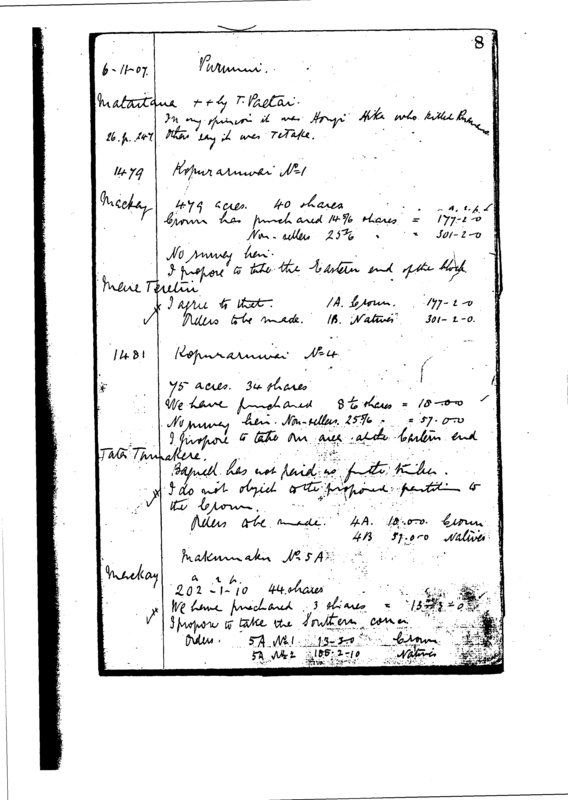 8
6-11-07. Purumui.
Mataitana ++ by T. Paetai.
In my opinion it was Hongi Hika who killed
26. p. 247 Others say it was TeTake.
1479 Kopuraruwai No 1
Mackay 479 acres. 40 shares
a. r. p.
Crown has purchased 14 shares = 177-2-0
Non-sellers 25 " = 301-2-0
No survey here.
I propose to take the Eastern end of the block
Mere Teretiu
I agree to that. 1A. Crown. 177-2-0
Orders to be made. 1B. Natives 301-2-0.
1481 Kopuraruwai No 4
75 acres. 34 shares
We have purchased 8 shares = 18-0-0
No survey here. Non-sellers 25 " = 57-0-0
I propose to take our area at the Eastern end
Tata
Bagnell has not paid as for the timber.
I do not object to the proposed partition to
the Crown.
Orders to be made. 4A. 18.0.0. Crown
4B 57.0-0 Natives
Makumaku No. 5A
Mackay
a r p.
202-1-10 44 shares
We have purchased 3 shares = 13-3-0
I propose to take the Southern corner
Orders. 5A No 1 13-3-0 Crown
5A No 2 188-2-10 Natives